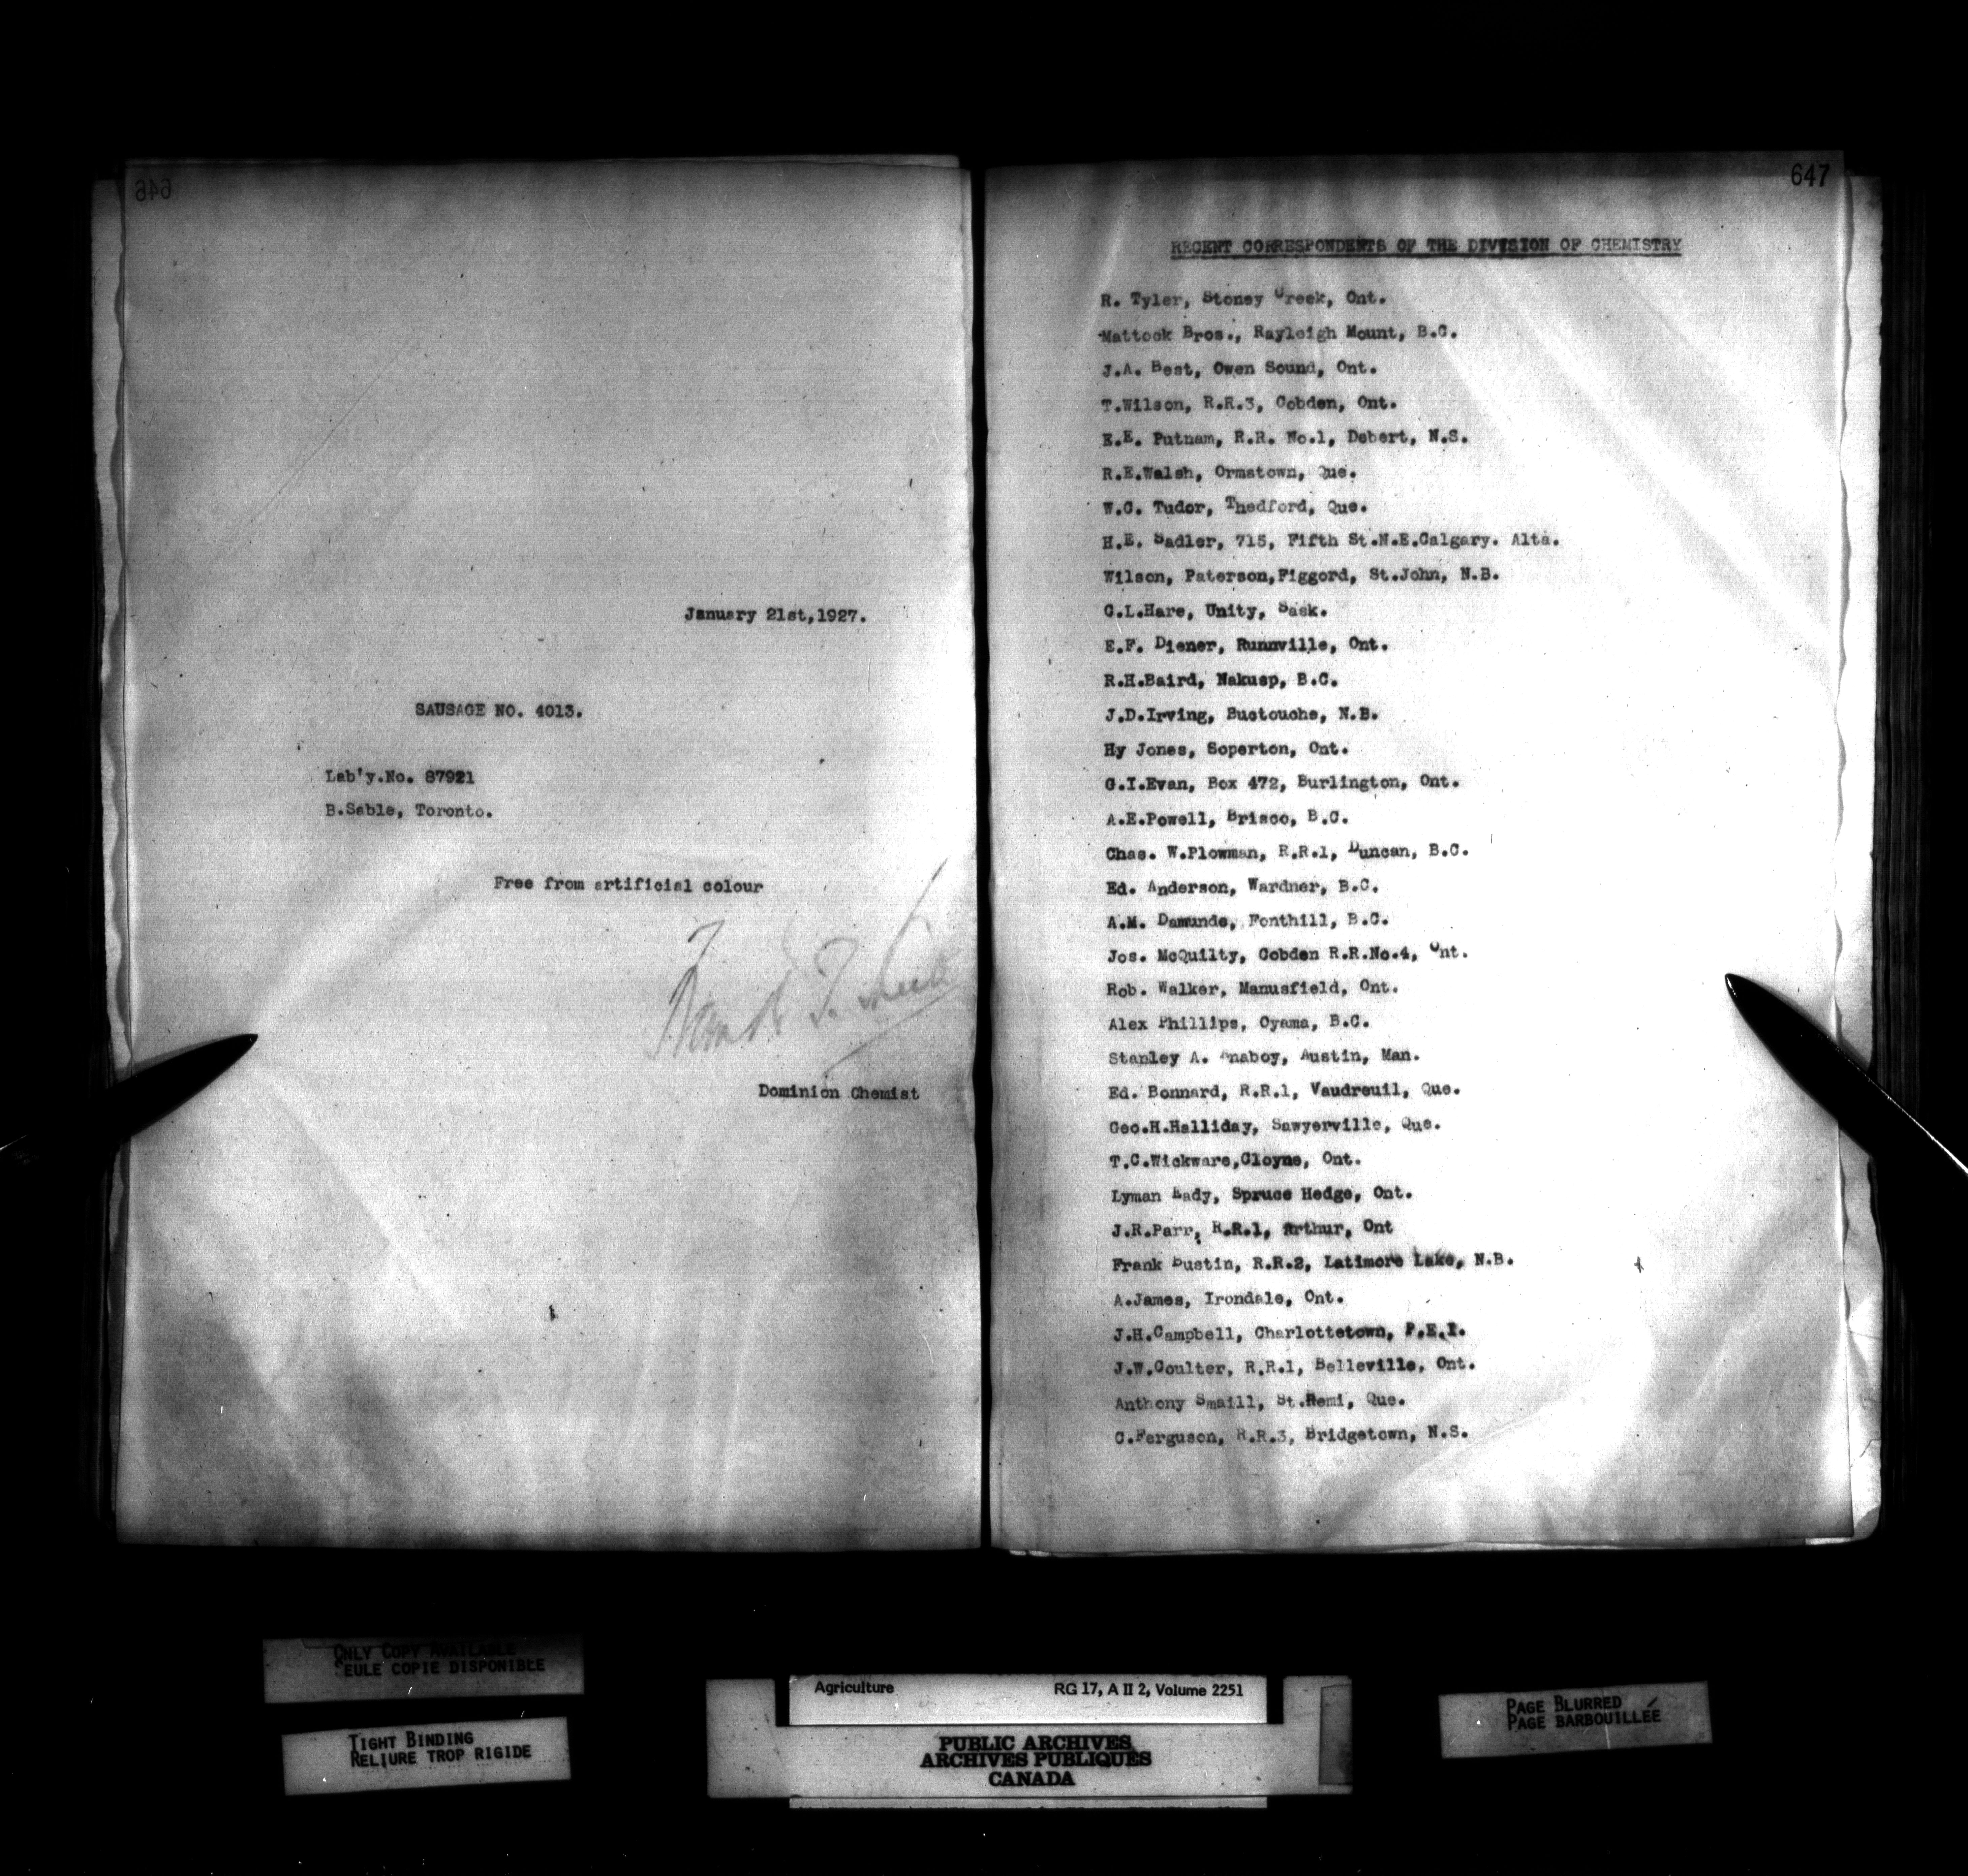 646
January 21st,1927.
SAUSAGE NO. 4013.
Lab'y.No. 87921
B.Sable, Toronto.
Free from artificial colour
Frank T. Shutt
Dominion Chemist
647
RECENT CORRESPONDENTS OF THE DIVISION OF CHEMISTRY
R. Tyler, Stoney Creek, Ont.
Mattock Bros., Rayleigh Mount, B.C.
J.A. Best, Owen Sound, Ont.
T.Wilson, R.R.3, Cobden, Ont.
E.E. Putnam, R.R. No.1, Debert, N.S.
R.E.Walsh, Ormstown, Que.
W.C. Tudor, Thedford, Que.
H.E. Sadler, 715, Fifth St.N.E.Calgary. Alta.
Wilson, Paterson,Figgord, St.John, N.B.
G.L.Hare, Unity, Sask.
E.F. Diener, Runnville, Ont.
R.H.Baird, Nakusp, B.C.
J.D.Irving, Buctouche, N.B.
Hy Jones, Soperton, Ont.
G.I.Evan, Box 472, Burlington, Ont.
A.E.Powell, Brisco, B.C.
Chas. W.Plowman, R.R.1, Duncan, B.C.
Ed. Anderson, Wardner, B.C.
A.M. Damunde, Fonthill, B.C.
Jos. McQuilty, Cobden R.R.No.4, Ont.
Rob. Walker, Manusfield, Ont.
Alex Phillips, Oyama, B.C.
Stanley A. Anaboy, Austin, Man.
Ed. Bonnard, R.R.1, Vaudreuil, Que.
Geo.H.Halliday, Sawyerville, Que.
T.C.Wickware,Cloyne, Ont.
Lyman Eady, Spruce Hedge, Ont.
J.R.Parr, R.R.1, Arthur, Ont
Frank Dustin, R.R.2, Latimore Lake, N.B.
A.James, Irondale, Ont.
J.H.Campbell, Charlottetown, P.E.I.
J.W.Coulter, R.R.1, Belleville, Ont.
Anthony Smaill, St.Remi, Que.
C.Ferguson, R.R.3, Bridgetown, N.S.
ONLY COPY AVAILABLE
SEULE COPIE DISPONIBLE
TIGHT BINDING
RELIURE TROP RIGIDE
Agriculture RG 17, A II 2, Volume 2251
PUBLIC ARCHIVES
ARCHIVES PUBLIQUES
CANADA
PAGE BLURRED
PAGE BARBOUILLÉE